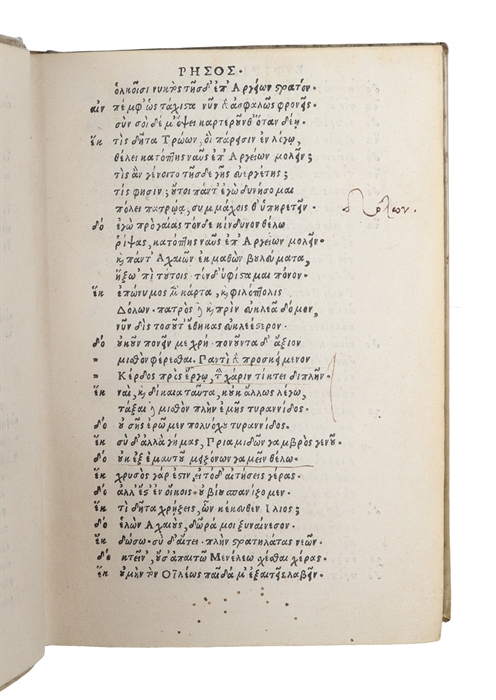 ΡΗΣΟΣ.
ὁλκοῖσι νυκτὸς τῆσδ' ἐπ' Ἀργείων στρατόν.
αιν πέμφ' ὡς τάχιστα· νῦν γὰρ ἀσφαλῶς φρονεῖς.
σὺν σοὶ δέ μ' ὄψει καρτεροῦνθ' ὅταν δέῃ.
ἑκ τίς δῆτα Τρώων, οἳ πάρεισιν ἐν λόγῳ,
θέλει κατόπτης ναῦς ἐπ' Ἀργείων μολεῖν;
τίς ἂν γένοιτο τῆσδε γῆς εὐεργέτης;
τίς φησίν; οὔτοι πάντ' ἐγὼ δυνήσομαι
πόλει πατρῴᾳ, συμμάχοις θ' ὑπηρετεῖν.
δό ἐγὼ πρὸ γαίας τόνδε κίνδυνον θέλω
ῥίψας, κατόπτης ναῦς ἐπ' Ἀργείων μολεῖν.
καὶ πάντ' Ἀχαιῶν ἐκμαθὼν βουλεύματα,
ἥξω· 'πὶ τούτοις τόνδ' ὑφίσταμαι πόνον.
ἑκ ἐπώνυμος μὲν κάρτα, καὶ φιλόπτολις
Δόλων· πατρὸς δὲ καὶ πρὶν εὐκλεᾶ δόμον,
νῦν δὶς τοσοῦτ' ἔθηκας εὐκλεέστερον.
δό οὐκοῦν πονεῖν μὲν χρή· πονοῦντα δ' ἄξιον
" μισθὸν φέρεσθαι. Παντὶ γὰρ προσκείμενον
" Κέρδος πρὸς ἔργῳ, τὴν χάριν τίκτει διπλῆν.
ἑκ ναί, καὶ δίκαια ταῦτα, κοὐκ ἄλλως λέγω,
τάξαι δὲ μισθὸν πλὴν ἐμῆς τυραννίδος.
δό οὐ σῆς ἐρῶμεν πολυόχου τυραννίδος.
ἑκ σὺ δ' ἀλλὰ γήμας, Πριαμιδῶν γαμβρὸς γενοῦ.
δό οὐκ ἐξ ἐμαυτοῦ μειζόνων γαμεῖν θέλω.
ἑκ χρυσὸς πάρεστιν, εἰ τόδ' αἰτήσεις γέρας.
δό ἀλλ' ἔστ' ἐν οἴκοις· οὐ βίου σπανίζομεν.
ἑκ τί δῆτα χρῄζεις, ὧν κέκευθεν Ἴλιος;
δό ἑλὼν Ἀχαιούς, δῶρά μοι ξυναίνεσον.
ἑκ δώσω· σὺ δ' αἴτει· πλὴν στρατηλάτας νεῶν.
δό κτεῖν', οὔ σ' ἀπαιτῶ Μενέλεω σχέσθαι χέρας.
ἑκ οὐ μὴν τὸν Ὀϊλέως παῖδά μ' ἐξαιτεῖς λαβεῖν.